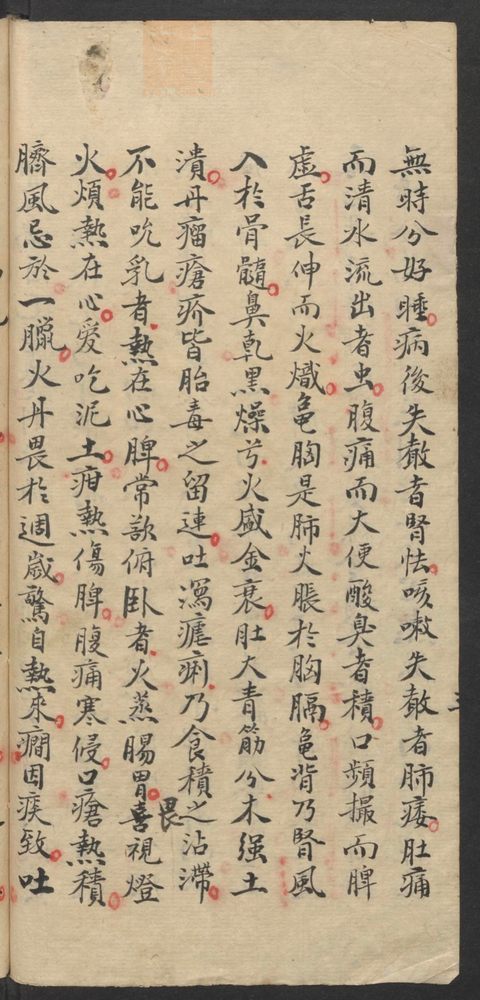 無時分好睡病後失聲者腎怯咳嗽失聲者肺痿肚痛
而清水流出者虫腹痛而大便酸臭者積口頻撮而脾
虛舌長伸而火熾龜胸是肺火脹於胸膈龜背乃腎風
入於骨髓鼻乾黑燥兮火盛金衰肚大青筋分木强土
潰丹瘤瘡疥皆胎毒之留連吐瀉瘧痢乃食積之沾滯
不能吮乳者熱在心脾常欲俯卧者火蒸腸胃喜視燈
畏
火煩熱在心愛吃泥土疳熱傷脾腹痛寒侵口瘡熱積
臍風忌於一臘火丹畏於週歲驚自熱來癇因痰致吐
三